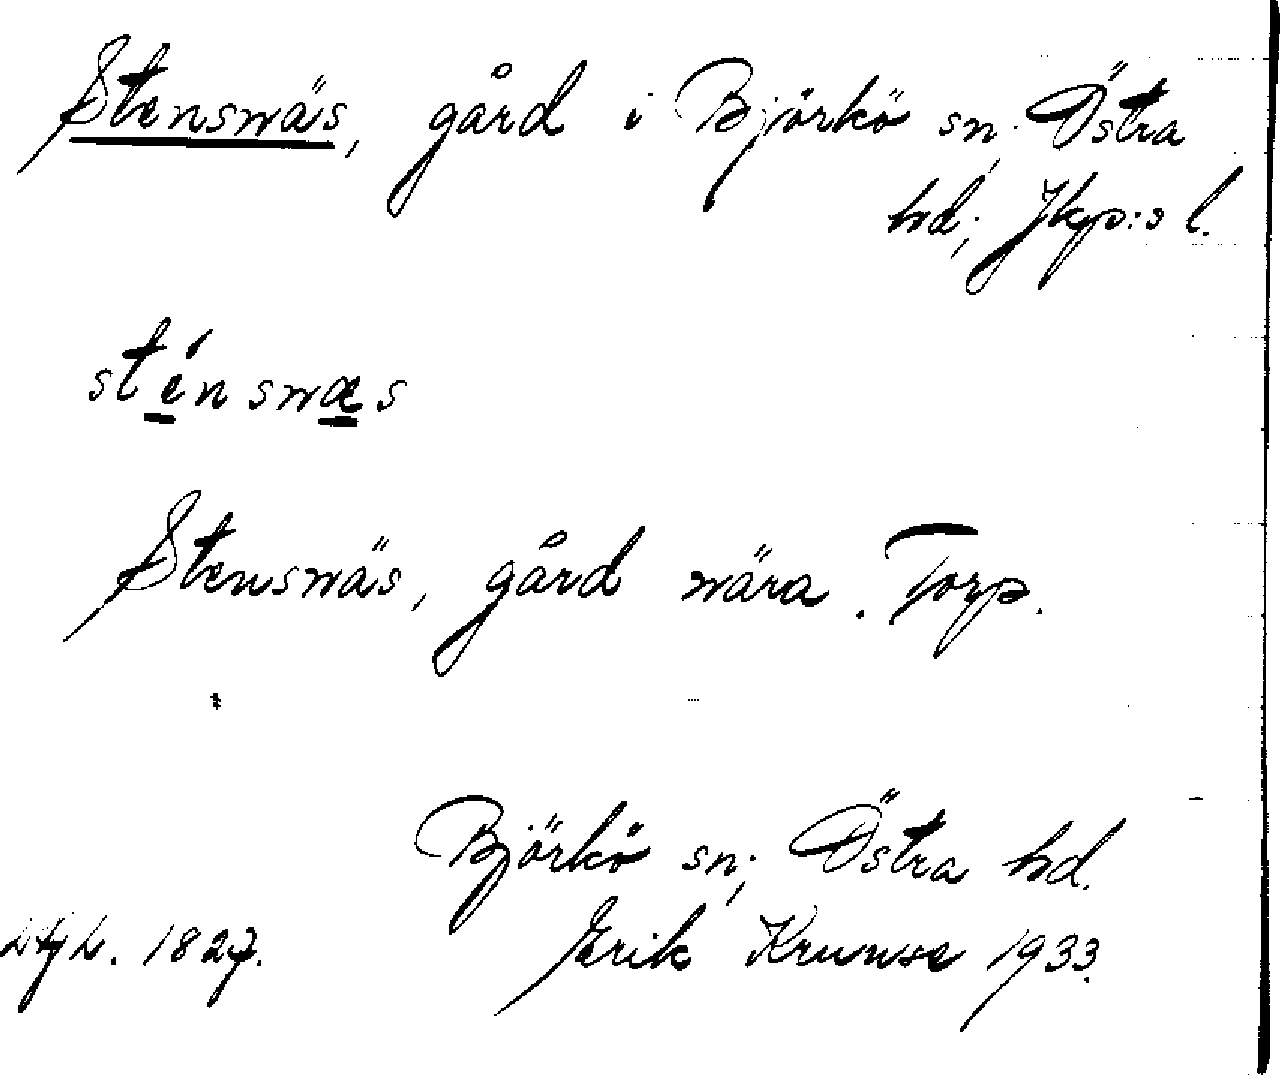 Stensnäs, gård i Björkö sn; Östra
hd; Jkp:s l.
sténsnæs
Stensnäs, gård nära Torp.
Björkö sn; Östra hd.
1827. Erik Krunse 1933.